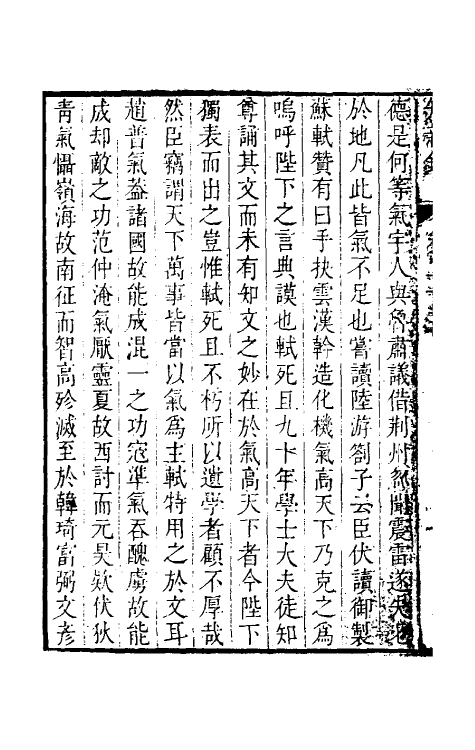 德是何等氣宇人與魯肅議借荆州忽聞震雷遂失
於地凡此皆氣不足也嘗讀陸游劄子云臣伏讀御製
蘇軾贊有曰手抉雲漢斡造化機氣高天下乃克之爲
嗚呼陛下之言典謨也軾死且九十年學士大夫徒知
尊誦其文而未有知文之妙在於氣高天下者今陛下
獨表而出之豈惟軾死且不朽所以遺學者顧不厚哉
然臣竊謂天下萬事皆當以氣爲主軾特用之於文耳
趙普氣葢諸國故能成混一之功寇準氣吞醜虜故能
成却敵之功范仲淹氣厭靈夏故西討而元昊欵伏狄
青氣懾嶺海故南征而智高殄滅至於韓琦富弼文彥